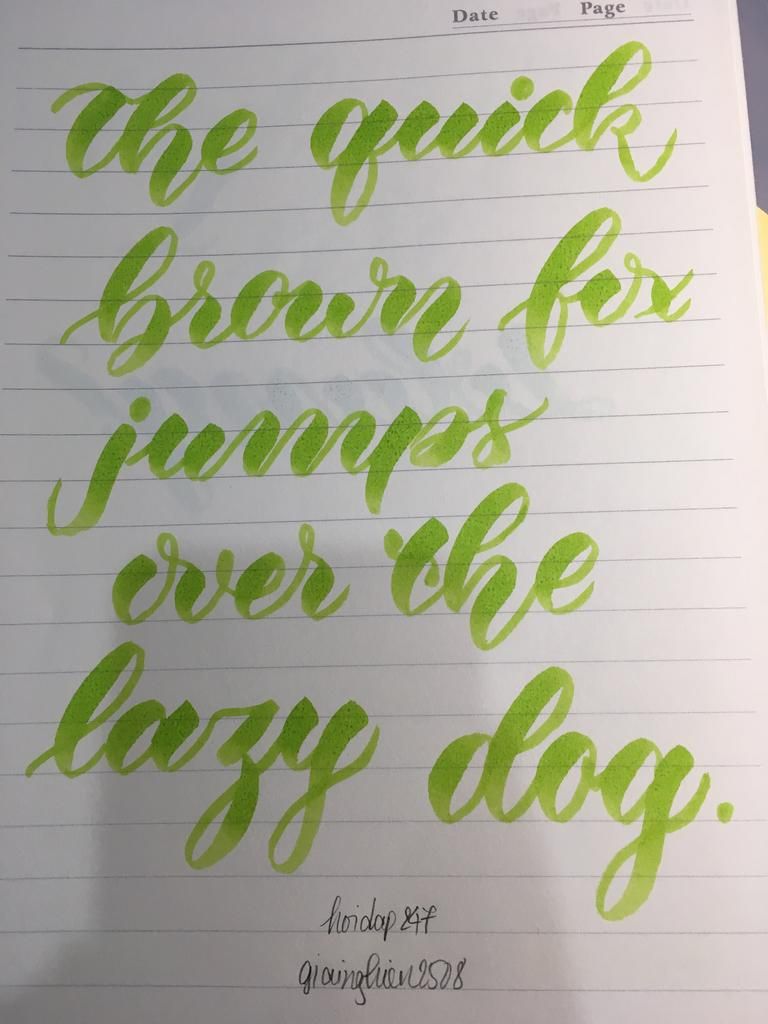 Date Page
the quick
brown fox
jumps
over the
lazy dog.
hoidap247
giainghien2508